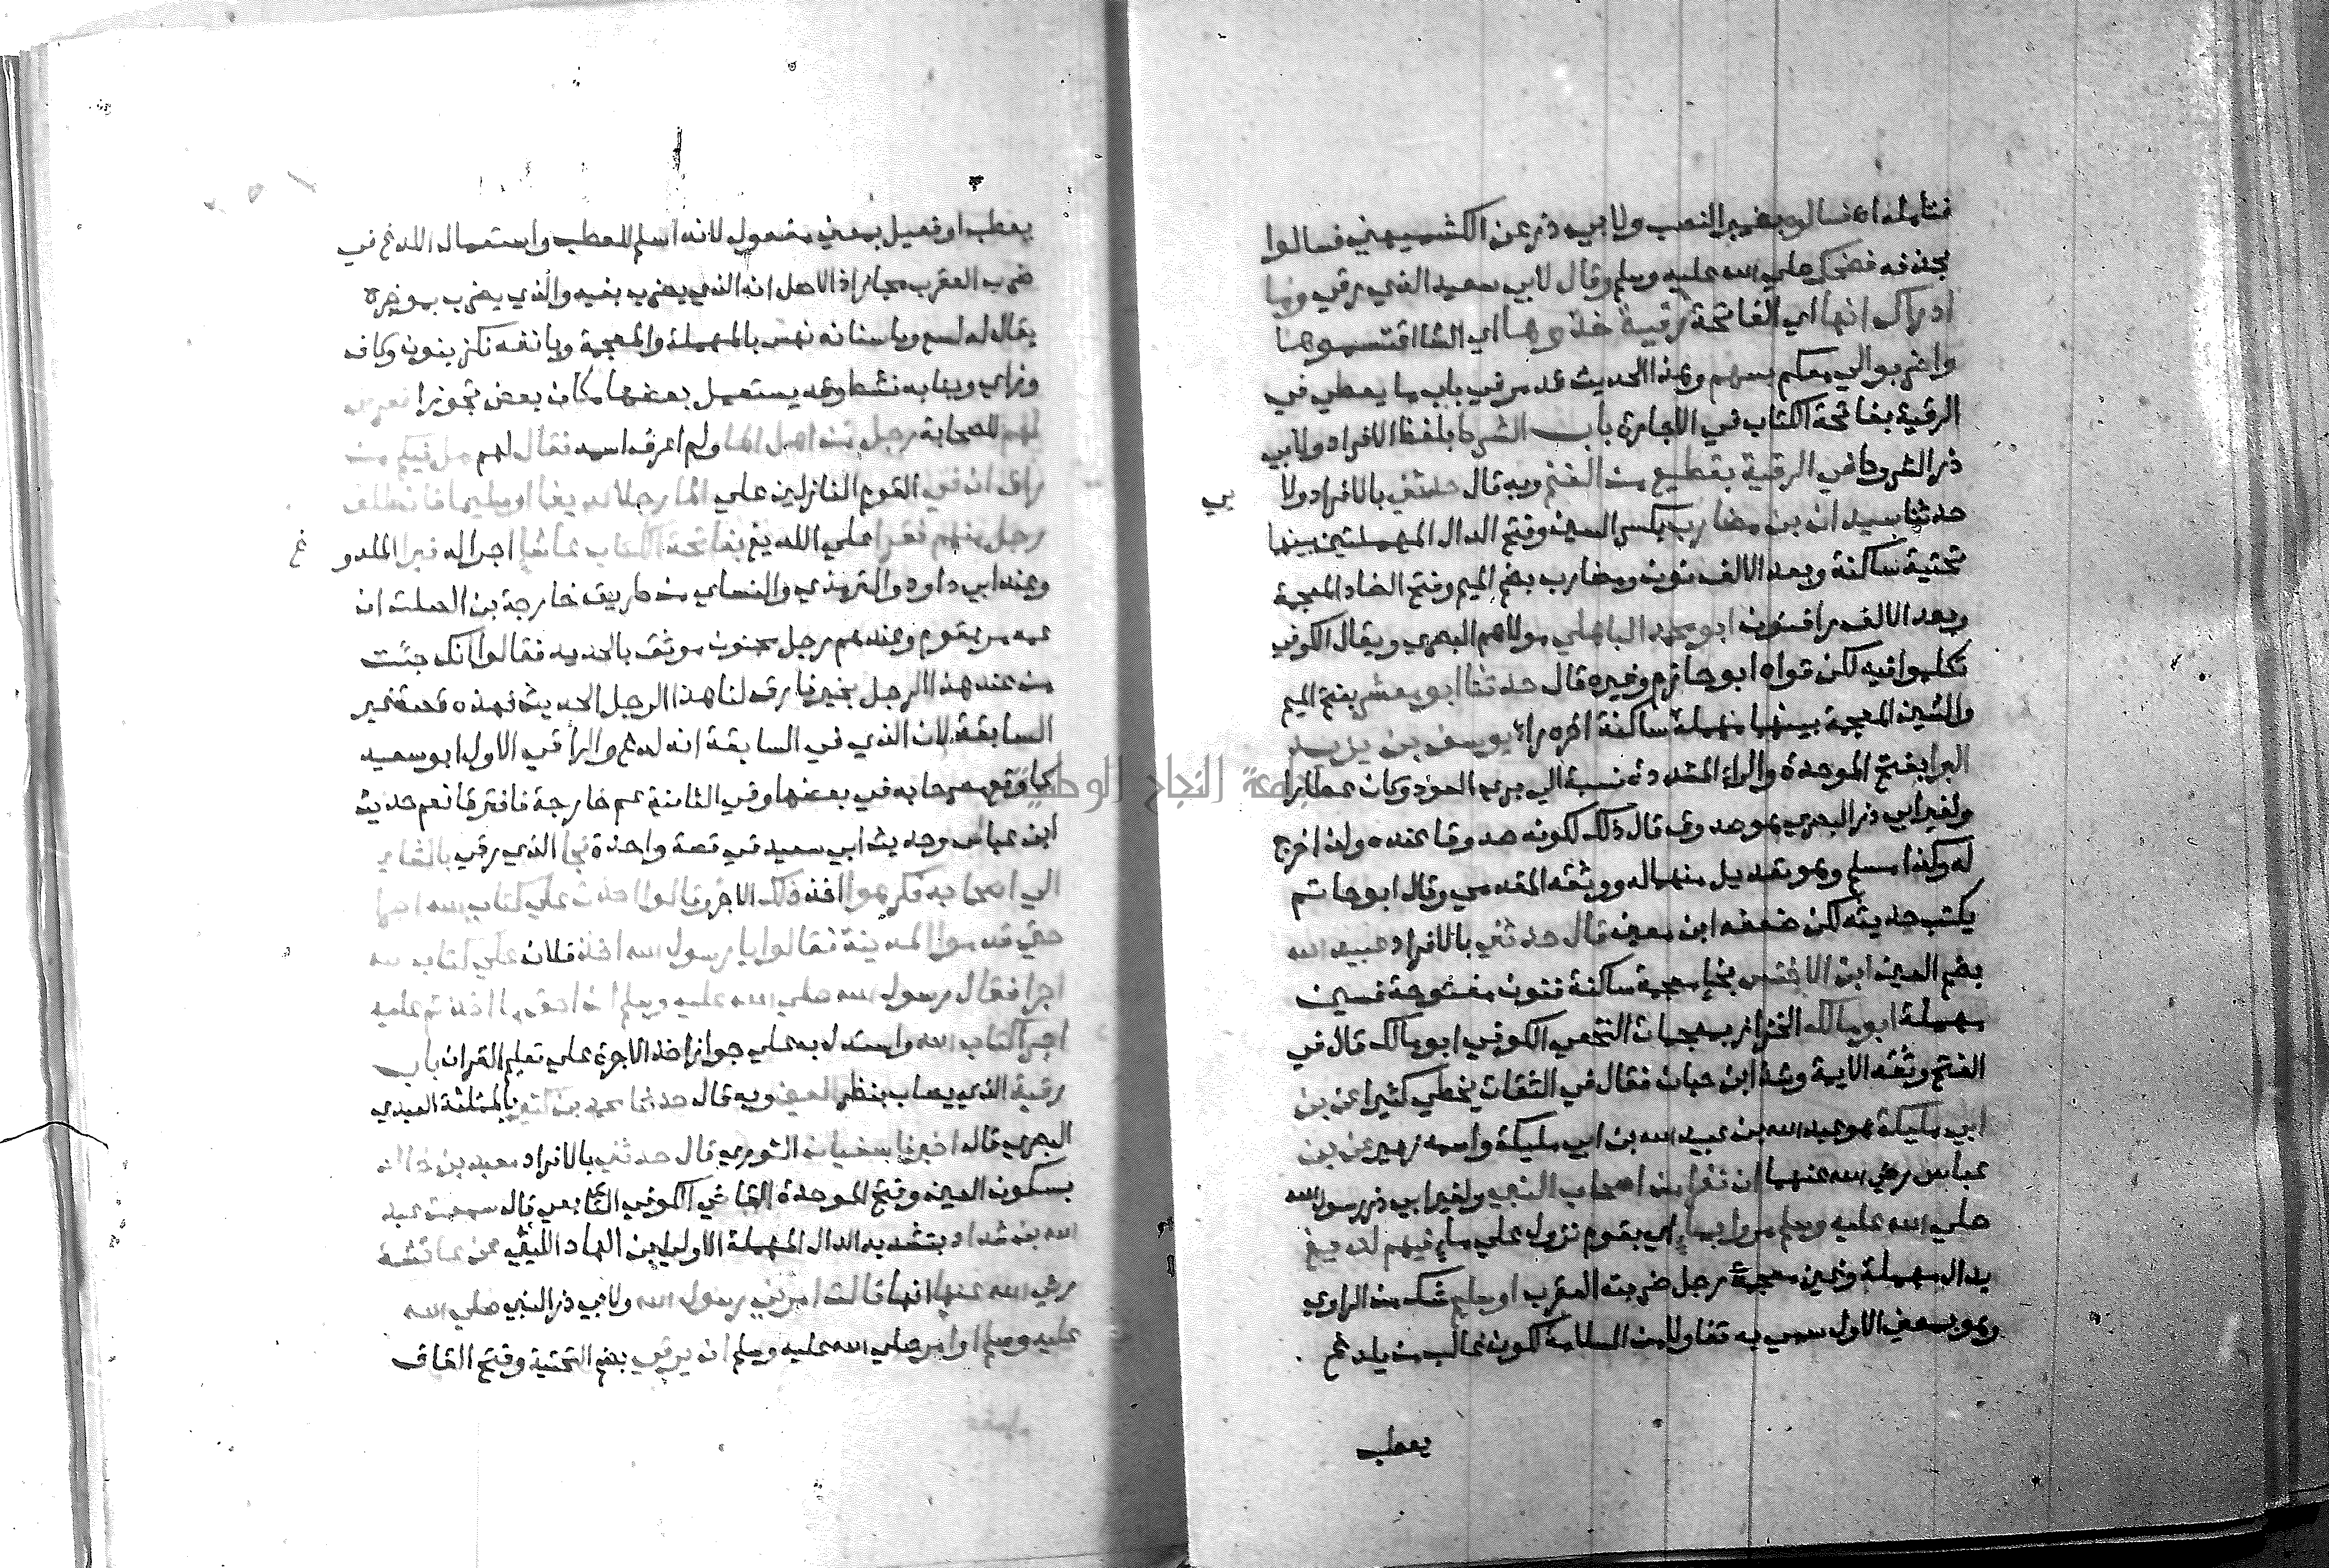 فتأمله انه فسالوه بضمير النصب ولابي ذر عن الكشميهني فسالوا
بحذفه فضحك صلي الله عليه وسلم وقال لابي سعيد الذي رقي وما
ادراك انها اي الفاتحة رقية خذوها اي الشا اقتسموها
واضربوا لي معكم بسهم وهذا الحديث قد مر في باب ما يعطي في
الرقية بفاتحة الكتاب في الاجارة باب الشرط بلفظ الافراد ولابي
ذر الشروط في الرقية بقطيع من الغنم وبه قال حدثني بالافراد ولا بي
حدثنا سيدان بن مضارب بكسر السين وفتح الدال المهملتين بينهما
تحتية ساكنة وبعد الالف نون ومضارب بضم الميم وفتح الضاد المعجمة
وبعد الالف را فنون ابو محمد الباهلي مولاهم البصري ويقال الكوفي
تكلموا فيه لكن قواه ابو حازم وغيره قال حدثنا ابو معشر بفتح الميم
والشين المعجمة بينهما مهملة ساكنة اخره راء يوسف بن يزيد
البرا بفتح الموحدة والراء المشددة نسبة الي بري العود وكان عطارا
ولغير ابي ذر البصري هو صدوق قال ذلك لكونه صدوقا عنده ولذا خرج
له وكذا مسلم وهو تعديل منهما له ووثقه المقدمي وقال ابو حاتم
يكتب حديثه لكن ضعفه ابن معين قال حدثني بالافراد عبيد الله
بضم العين ابن الاخنس بخاء معجمة ساكنة فنون مفتوحة فسين
مهملة ابو مالك الخزاز بمعجمات النخعي الكوفي ابو مالك قال في
الفتح وثقه الايمة وشذ ابن حبان فقال في الثقات يخطي كثيرا عن بن
ابي مليكة هو عبد الله بن عبيد الله بن ابي مليكة واسمه زهير عن بن
عباس رضي الله عنهما ان نفرا من اصحاب النبي ولغير ابي ذر رسول الله
صلي الله عليه وسلم مروا بماء اي بقوم نزول علي ماء فيهم لديغ
بدال مهملة وغين معجمة رجل ضربته العقرب او سليم شك من الراوي
وهو بمعني الاول سمي به تفاولا من السلامة لكون غالب من يلدغ
يعطب
يعطب او فعيل بمعني مفعول لانه اسلم للعطب واستعمال اللدغ في
ضرب العقرب مجاز اذ الاصل انه الذي يضرب بفيه والذي يضرب بموخره
يقال له لسع وباسنانه نهس بالمهملة والمعجمة وبانفه نكز بنون وكاف
وزاي وبنابه نشط وقد يستعمل بعضها مكان بعض تجوزا فعرض
لهم للصحابة رجل من اهل الما ولم اعرف اسمه فقال لهم هل فيكم من
راق ان في القوم النازلين علي الما رجلا لديغا او سليما فانطلق
رجل منهم فقرا علي اللديغ بفاتحة الكتاب علي شاء اجرا له فبرا الملدوغ
وعند ابي داود والترمذي والنساي من طريق خارجة بن الصلت ان
عمه مر بقوم وعندهم رجل مجنون موثق بالحديد فقالوا انك جئت
من عند هذا الرجل بخير فارق لنا هذا الرجل الحديث فهذه قصة غير
السابقة لان الذي في السابقة انه لدغ والراقي الاول ابو سعيد
كما وقع مصرحا به في بعضها وفي الثانية عم خارجة فافترقا نعم حديث
ابن عباس وحديث ابي سعيد في قصة واحدة فجا الذي رقي بالشاء
الي اصحابه فكرهوا اخذ ذلك الاجر وقالوا اخذت علي كتاب الله اجرا
حتي قدموا المدينة فقالوا يا رسول الله اخذ فلان علي كتاب الله
اجرا فقال رسول الله صلي الله عليه وسلم ان احق ما اخذتم عليه
اجرا كتاب الله واستدل به علي جواز اخذ الاجرة علي تعليم القران باب
رقية الذي يصاب بنظر العين وبه قال حدثنا محمد بن كثير بالمثلثة العبدي
البصري قال اخبرنا سفيان الثوري قال حدثني بالافراد معبد بن خالد
بسكون العين وفتح الموحدة القاضي الكوفي التابعي قال سمعت عبد
الله بن شداد بتشديد الدال المهملة الاولي بن الهاد الليثي عن عائشة
رضي الله عنها انها قالت امرني رسول الله ولابي ذر النبي صلي الله
عليه وسلم او امر صلي الله عليه وسلم ان يرقي بضم التحتية وفتح القاف
جامعة النجاح الوطنية